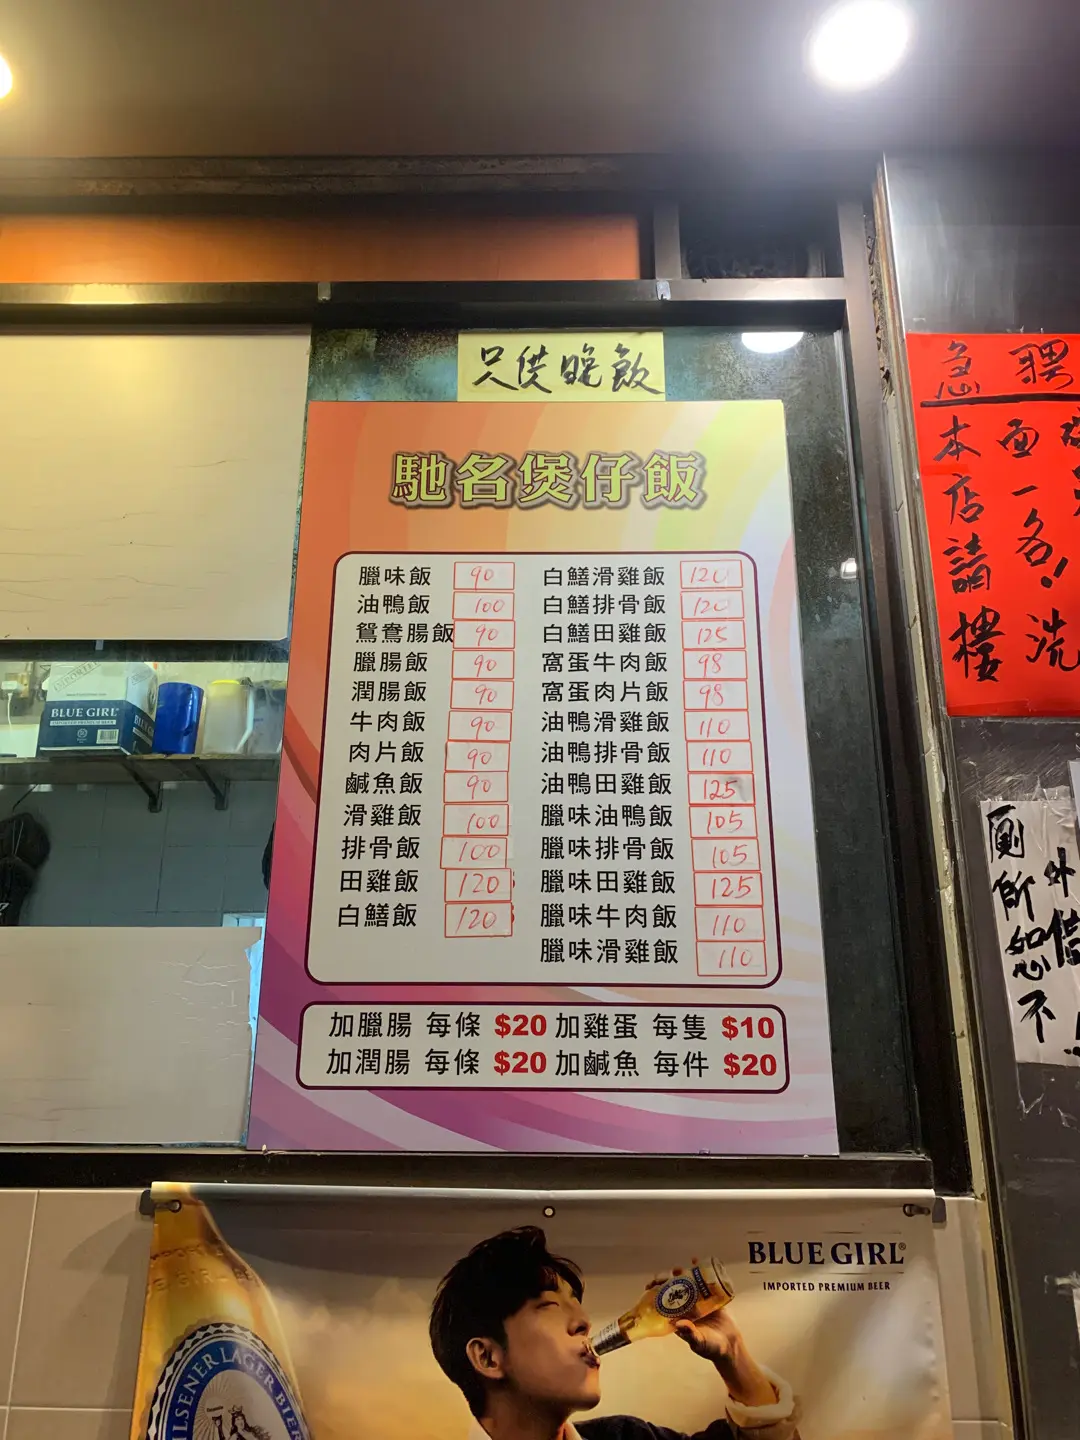 只供晚飯
馳名煲仔飯
臘味飯 90
油鴨飯 100
鴛鴦腸飯 90
臘腸飯 90
潤腸飯 90
牛肉飯 90
肉片飯 90
鹹魚飯 90
滑雞飯 100
排骨飯 100
田雞飯 120
白鱔飯 120
白鱔滑雞飯 120
白鱔排骨飯 120
白鱔田雞飯 125
窩蛋牛肉飯 98
窩蛋肉片飯 98
油鴨滑雞飯 110
油鴨排骨飯 110
油鴨田雞飯 125
臘味油鴨飯 105
臘味排骨飯 105
臘味田雞飯 125
臘味牛肉飯 110
臘味滑雞飯 110
加臘腸 每條 $20 加雞蛋 每隻 $10
加潤腸 每條 $20 加鹹魚 每件 $20
急聘
本店請樓
面一名!
洗
廁所如心不
外借
BLUE GIRL
BLUE GIRL®
IMPORTED PREMIUM BEER
PILSENER LAGER BEER